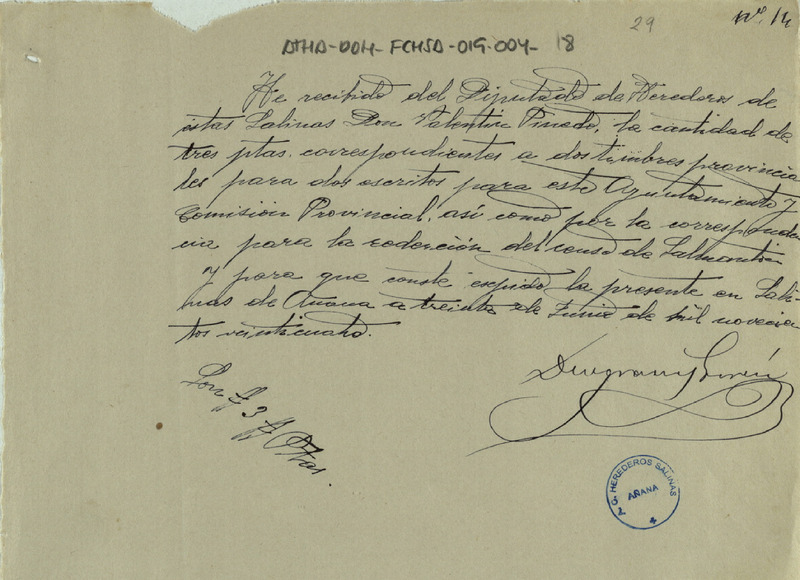 29 Nº 14
ATHA-DOH-FCHSA-019-004-18
He recibido del Diputado de Herederos de
estas Salinas Don Valentin Pinedo, la cantidad de
tres ptas. correspondientes a dos timbres provincia
les para dos escritos para este Ayuntamiento y
Comisión Provincial, así como por la corresponden
cia para la redención del censo de
y para que conste expido la presente en Sali-
nas de Añana a treinta de Junio de mil novecien
tos veinticuatro.
Son # 3 # Ptas.
C. HEREDEROS SALINAS
AÑANA